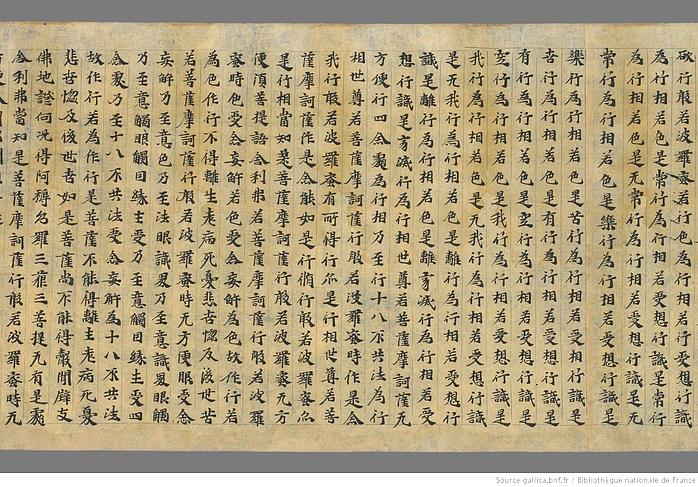 欲行般若波羅蜜若行色為行相若行受想行識
為行相若色是常行為行相若受想行識是常行
為行相若色是无常行為行相若受想行識是无
常行為行相若色是樂行為行相若受想行識是
樂行為行相若色是苦行為行相若受想行識是
苦行為行相若色是有行為行相若受想行識是
有行為行相若色是空行為行相若受想行識是
空行為行相若色是我行為行相若受想行識是
我行為行相若色是无我行為行相若受想行識
是无我行為行相若色是離行為行相若受想行
識是離行為行相若色是寂滅行為行相若受
想行識是寂滅行為行相世尊若菩薩摩訶薩无
方便行四念處為行相乃至行十八不共法為行
相世尊若菩薩摩訶薩行般若波羅蜜時作是念
我行般若波羅蜜有可得行亦是行相世尊若菩
薩摩訶薩作是念能如是行是脩行般若波羅蜜亦
是行相當知是菩薩摩訶薩行般若波羅蜜无方
便須菩提語舍利弗若菩薩摩訶薩行般若波羅
蜜時色受念妄解若色受念妄解為色故作行若
為色作行不得離生老病死憂悲苦惱及後世苦
若菩薩摩訶薩行般若波羅蜜時无方便眼受念
妄解乃至意色乃至法眼識界乃至意識界眼觸
乃至意觸眼觸因緣生受乃至意觸因緣生受四
念處乃至十八不共法受念妄解為十八不共法
故作行若為作行是菩薩不能得離生老病死憂
悲苦惱及後世苦如是菩薩尚不能得聲聞辟支
佛地證何況得阿耨多羅三藐三菩提无有是處
舍利弗當知是菩薩摩訶薩行般若波羅蜜時无
Source gallica.bnf.fr / Bibliothèque nationale de France